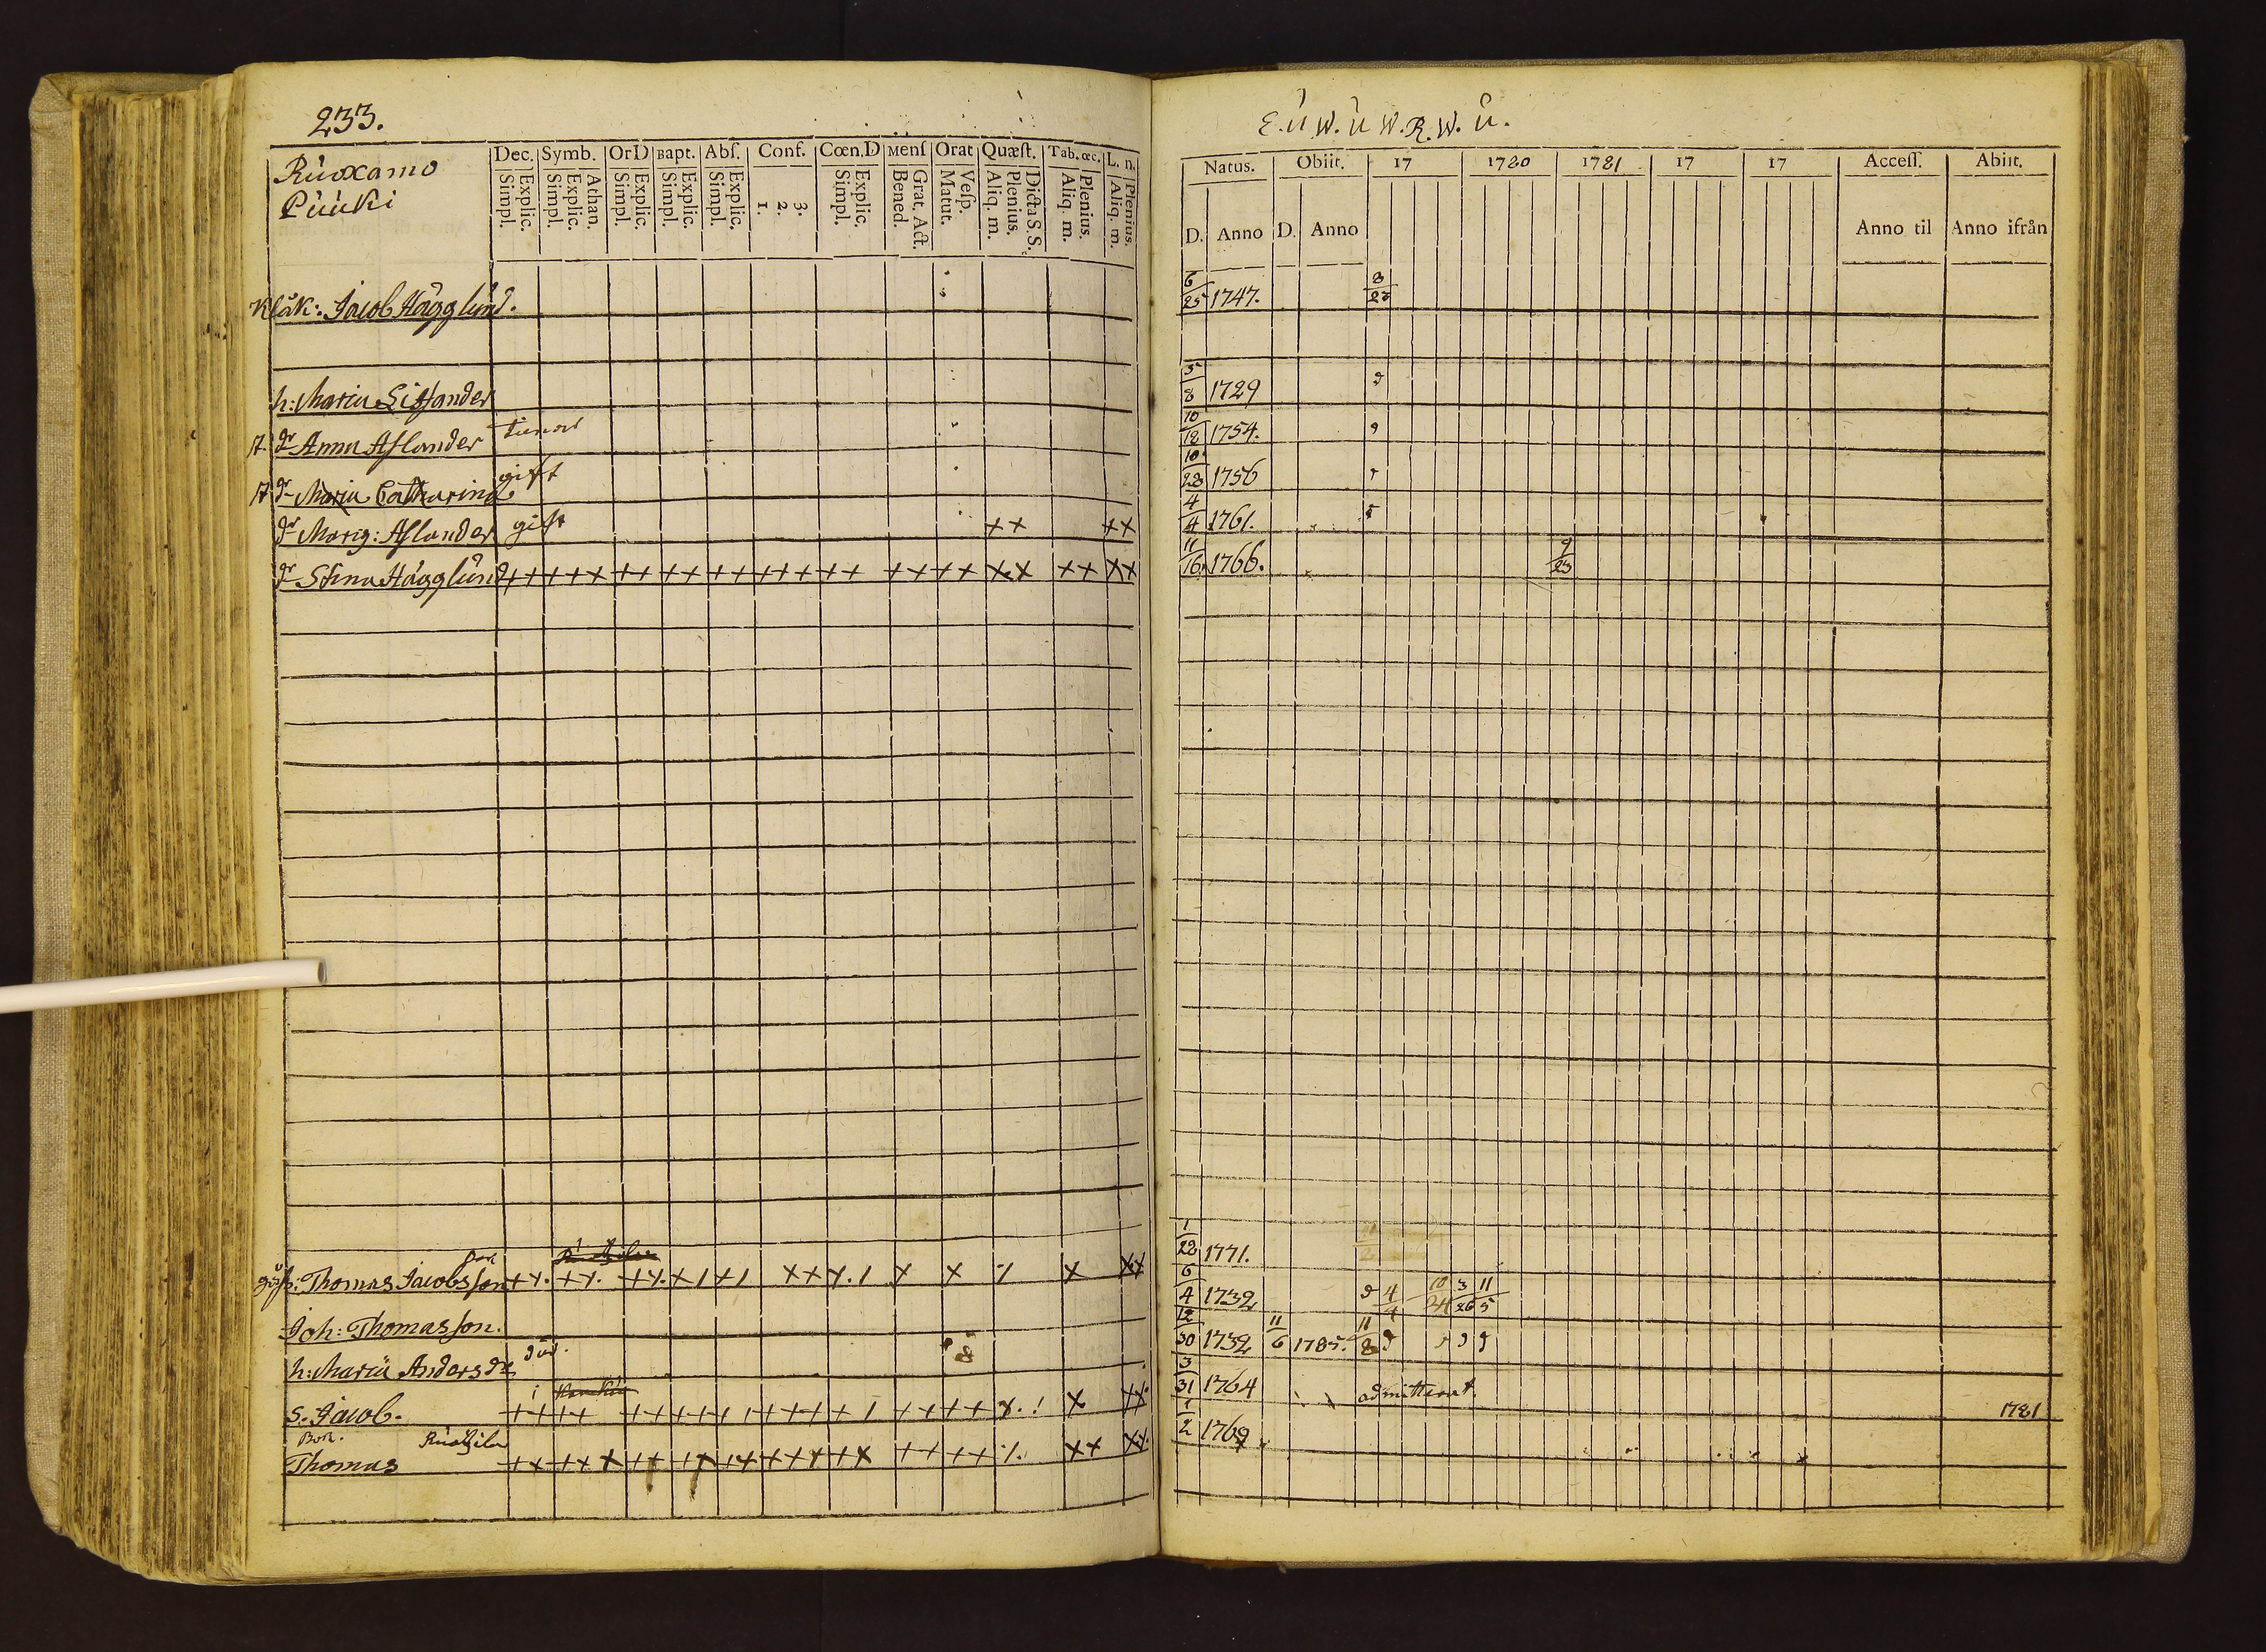 233.
Rúoxamo
Púúki
Dec. Symb. OrD Bapt. Abſ. Conf. Cœn.D Menſ Orat Quæſt. Tab.œc. L. n.
Explic. Simpl. Athan. Explic. Simpl. Explic. Simpl. Explic. Simpl. Explic. Simpl. 1. 2. 3. Explic. Simpl. Grat. Act. Bened. Veſp. Matut. Dicta S.S. Plenius. Aliq. m. Plenius. Aliq. m. Plenius. Aliq. m.
Klåk: Jacob Hägglúnd.
h: Maria Lithander
dr Anna Aflander
dr Maria Catharina gift
dr Marg: Aflander gift ++ ++
dr Stina Hägglúnd ++ +++ ++ ++ ++ +++ ++ ++ ++ xx ++ xx
Thomas Jacobsson
Joh: Thomasson.
h: Maria Andersdr död.
s. Jacob.
Thomas
E. ú W. ú W. R. W. ú.
Natus. Obiit. 17 1780 1781 17 17 Acceſſ. Abiit.
D. Anno D. Anno Anno til Anno ifrån
6/25 1747. 8/23
5/8 1729
10/18 1754.
10/28 1756
4/4 1761.
11/16 1766. 9/23
1/28 1771.
6/4 1732 4/4 10/24 3/26 11/5
12/30 1732 11/6 1785. 11/8
3/31 1764 admitterat.
1781
1/2 1769